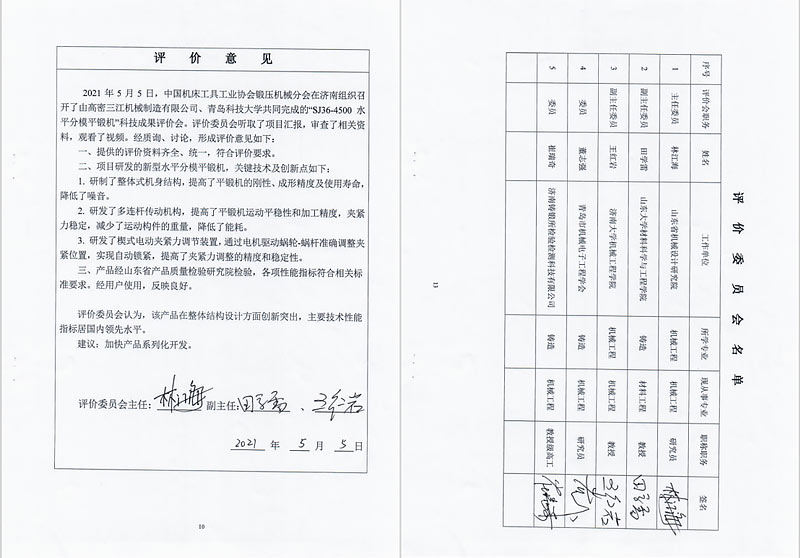 评 价 意 见
2021 年 5 月 5 日，中国机床工具工业协会锻压机械分会在济南组织召
开了由高密三江机械制造有限公司、青岛科技大学共同完成的“SJ36-4500 水
平分模平锻机”科技成果评价会。评价委员会听取了项目汇报，审查了相关资
料，观看了视频。经质询、讨论，形成评价意见如下：
一、提供的评价资料齐全、统一，符合评价要求。
二、项目研发的新型水平分模平锻机，关键技术及创新点如下：
1. 研制了整体式机身结构，提高了平锻机的刚性、成形精度及使用寿命，
降低了噪音。
2. 研发了多连杆传动机构，提高了平锻机运动平稳性和加工精度，夹紧
力稳定，减少了运动构件的重量，降低了能耗。
3. 研发了楔式电动夹紧力调节装置，通过电机驱动蜗轮-蜗杆准确调整夹
紧位置，实现自动锁紧，提高了夹紧力调整的精度和稳定性。
三、产品经山东省产品质量检验研究院检验，各项性能指标符合相关标
准要求。经用户使用，反映良好。
评价委员会认为，该产品在整体结构设计方面创新突出，主要技术性能
指标居国内领先水平。
建议：加快产品系列化开发。
评价委员会主任：林江海 副主任：田学雷 、王红岩
2021 年 5 月 5 日
10
评 价 委 员 会 名 单
序号 评价会职务 姓名 工作单位 所学专业 现从事专业 职称职务 签名
1 主任委员 林江海 山东省机械设计研究院 机械工程 机械工程 研究员 林江海
2 副主任委员 田学雷 山东大学材料科学与工程学院 铸造 材料工程 教授 田学雷
3 副主任委员 王红岩 济南大学机械工程学院 机械工程 机械工程 教授 王红岩
4 委员 董志强 青岛市机械电子工程学会 铸造 机械工程 研究员
5 委员 崔瑞奇 济南铸锻所检验检测科技有限公司 铸造 机械工程 教授级高工 崔瑞奇
13